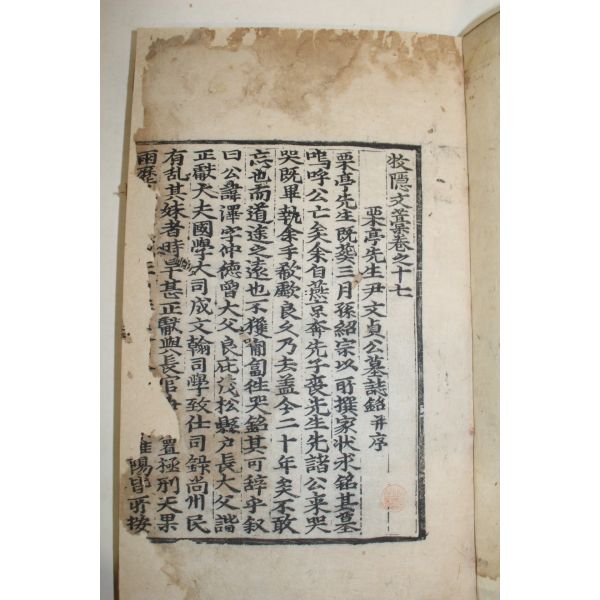 牧隱文藁卷之十七
栗亭先生尹文貞公墓誌銘 并序
栗亭先生旣葬三月孫紹宗以所撰家狀求銘其墓
嗚呼公亡矣余自燕京奔先子喪先生先諸公來哭
哭旣畢執余手欷歔良久乃去盖今二十年矣不敢
忘也而道途之遠也不獲匍匐徃哭銘其可辞乎叙
曰公諱澤字仲德曾大父良庇茂松縣户長大父諧
正獻大夫國學大司成文翰司學致仕司錄尙州民
有乱其妹者時旱甚正獻與長官 置極刑天果
雨歷 淮陽皆所按